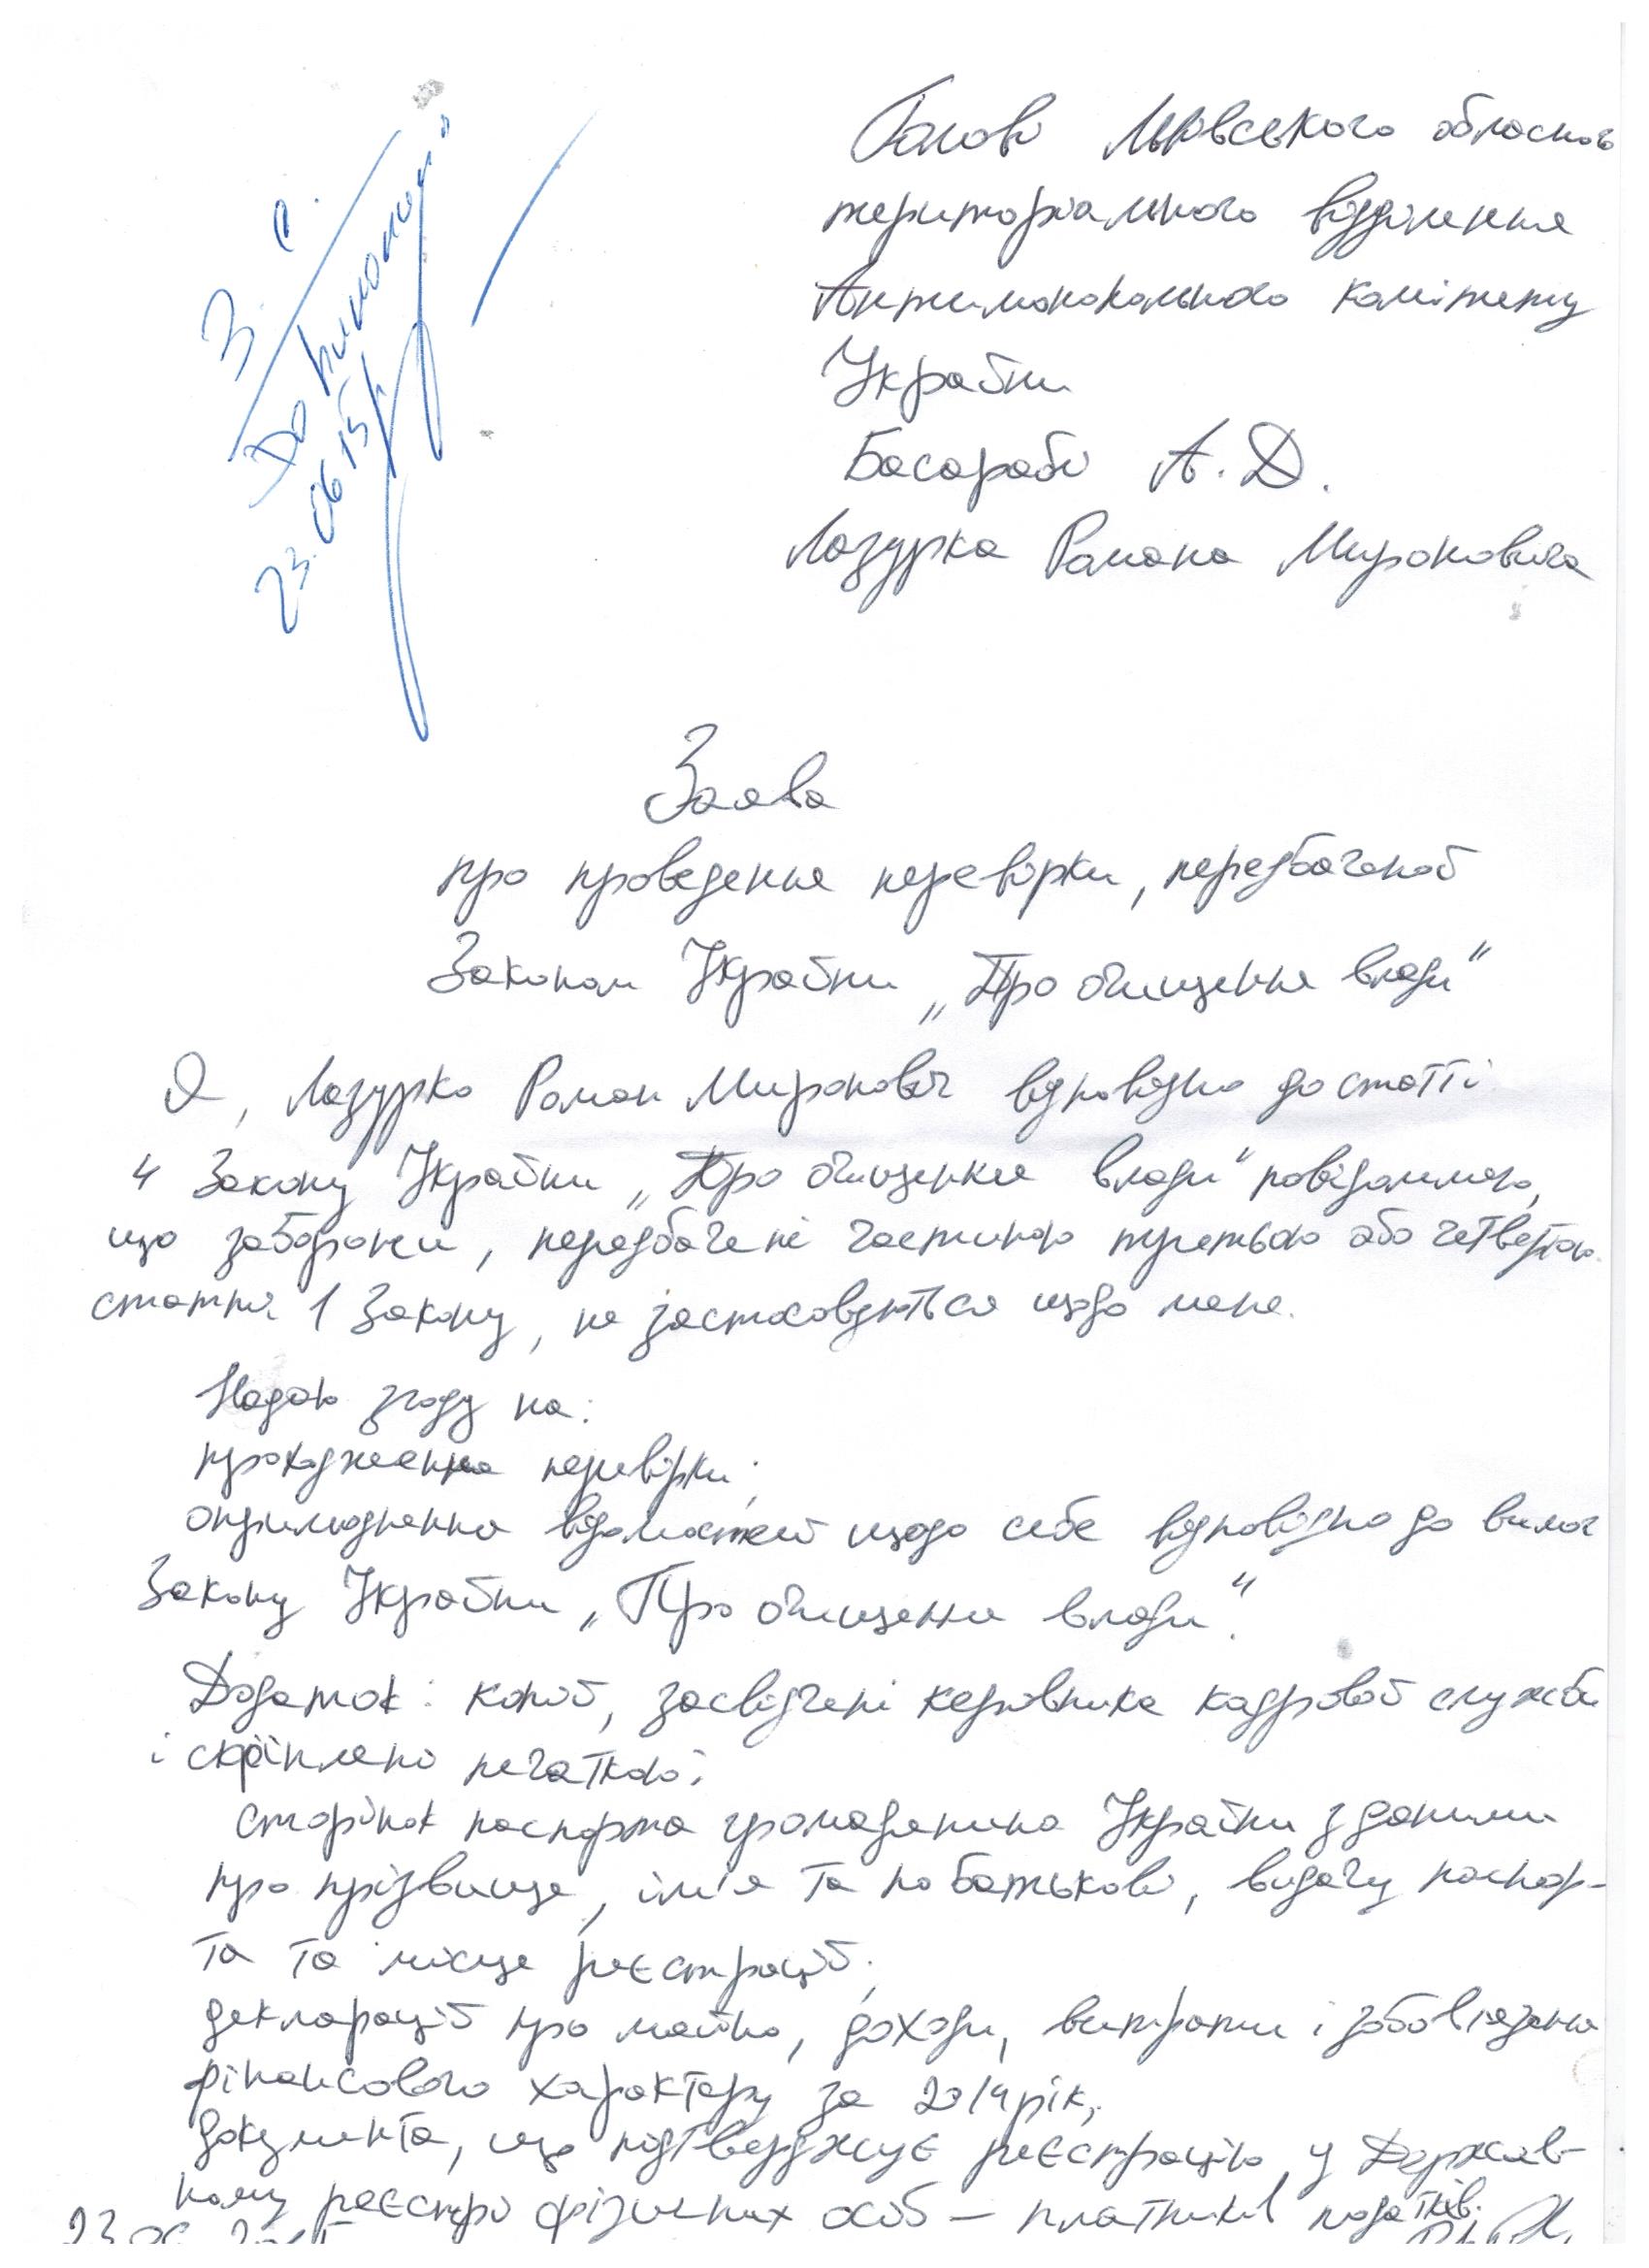 З. С.
До виконання
23.06.15
Голові Львівського обласного
територіального відділення
Антимонопольного комітету
України
Басарабі А.Д.
Лазурка Романа Мироновича
Заява
про проведення перевірки, передбаченої
Законом України „Про очищення влади“
Я, Лазурко Роман Миронович відповідно до статті
4 Закону України „Про очищення влади“ повідомляю,
що заборони, передбачені частиною третьою або четвертою
статті 1 Закону, не застосовуються щодо мене.
Надаю згоду на:
проходження перевірки;
оприлюднення відомостей щодо себе відповідно до вимог
Закону України „Про очищення влади“.
Додаток: копії, засвідчені керівника кадрової служби
і скріплені печаткою:
сторінок паспорта громадянина України з даними
про прізвище, ім'я та по батькові, видачу паспор-
та та місце реєстрації;
декларації про майно, доходи, витрати і зобов'язання
фінансового характеру за 2014 рік;
документа, що підтверджує реєстрацію у Держав-
ному реєстрі фізичних осіб – платників податків.
23.06.2015